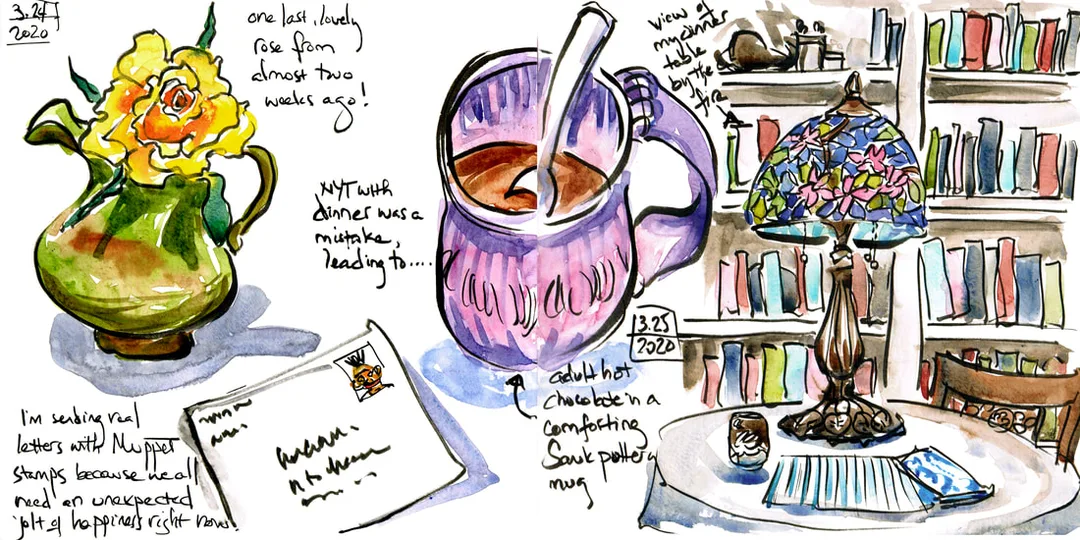 3.24
2020
one last, lovely
rose from
almost two
weeks ago!
NYT with
dinner was a
mistake,
leading to....
I'm sending real
letters with Muppet
stamps because we all
need an unexpected
jolt of happiness right now.
view of
my dinner
table
by the
fire
3.25
2020
adult hot
chocolate in a
comforting
pottery
mug